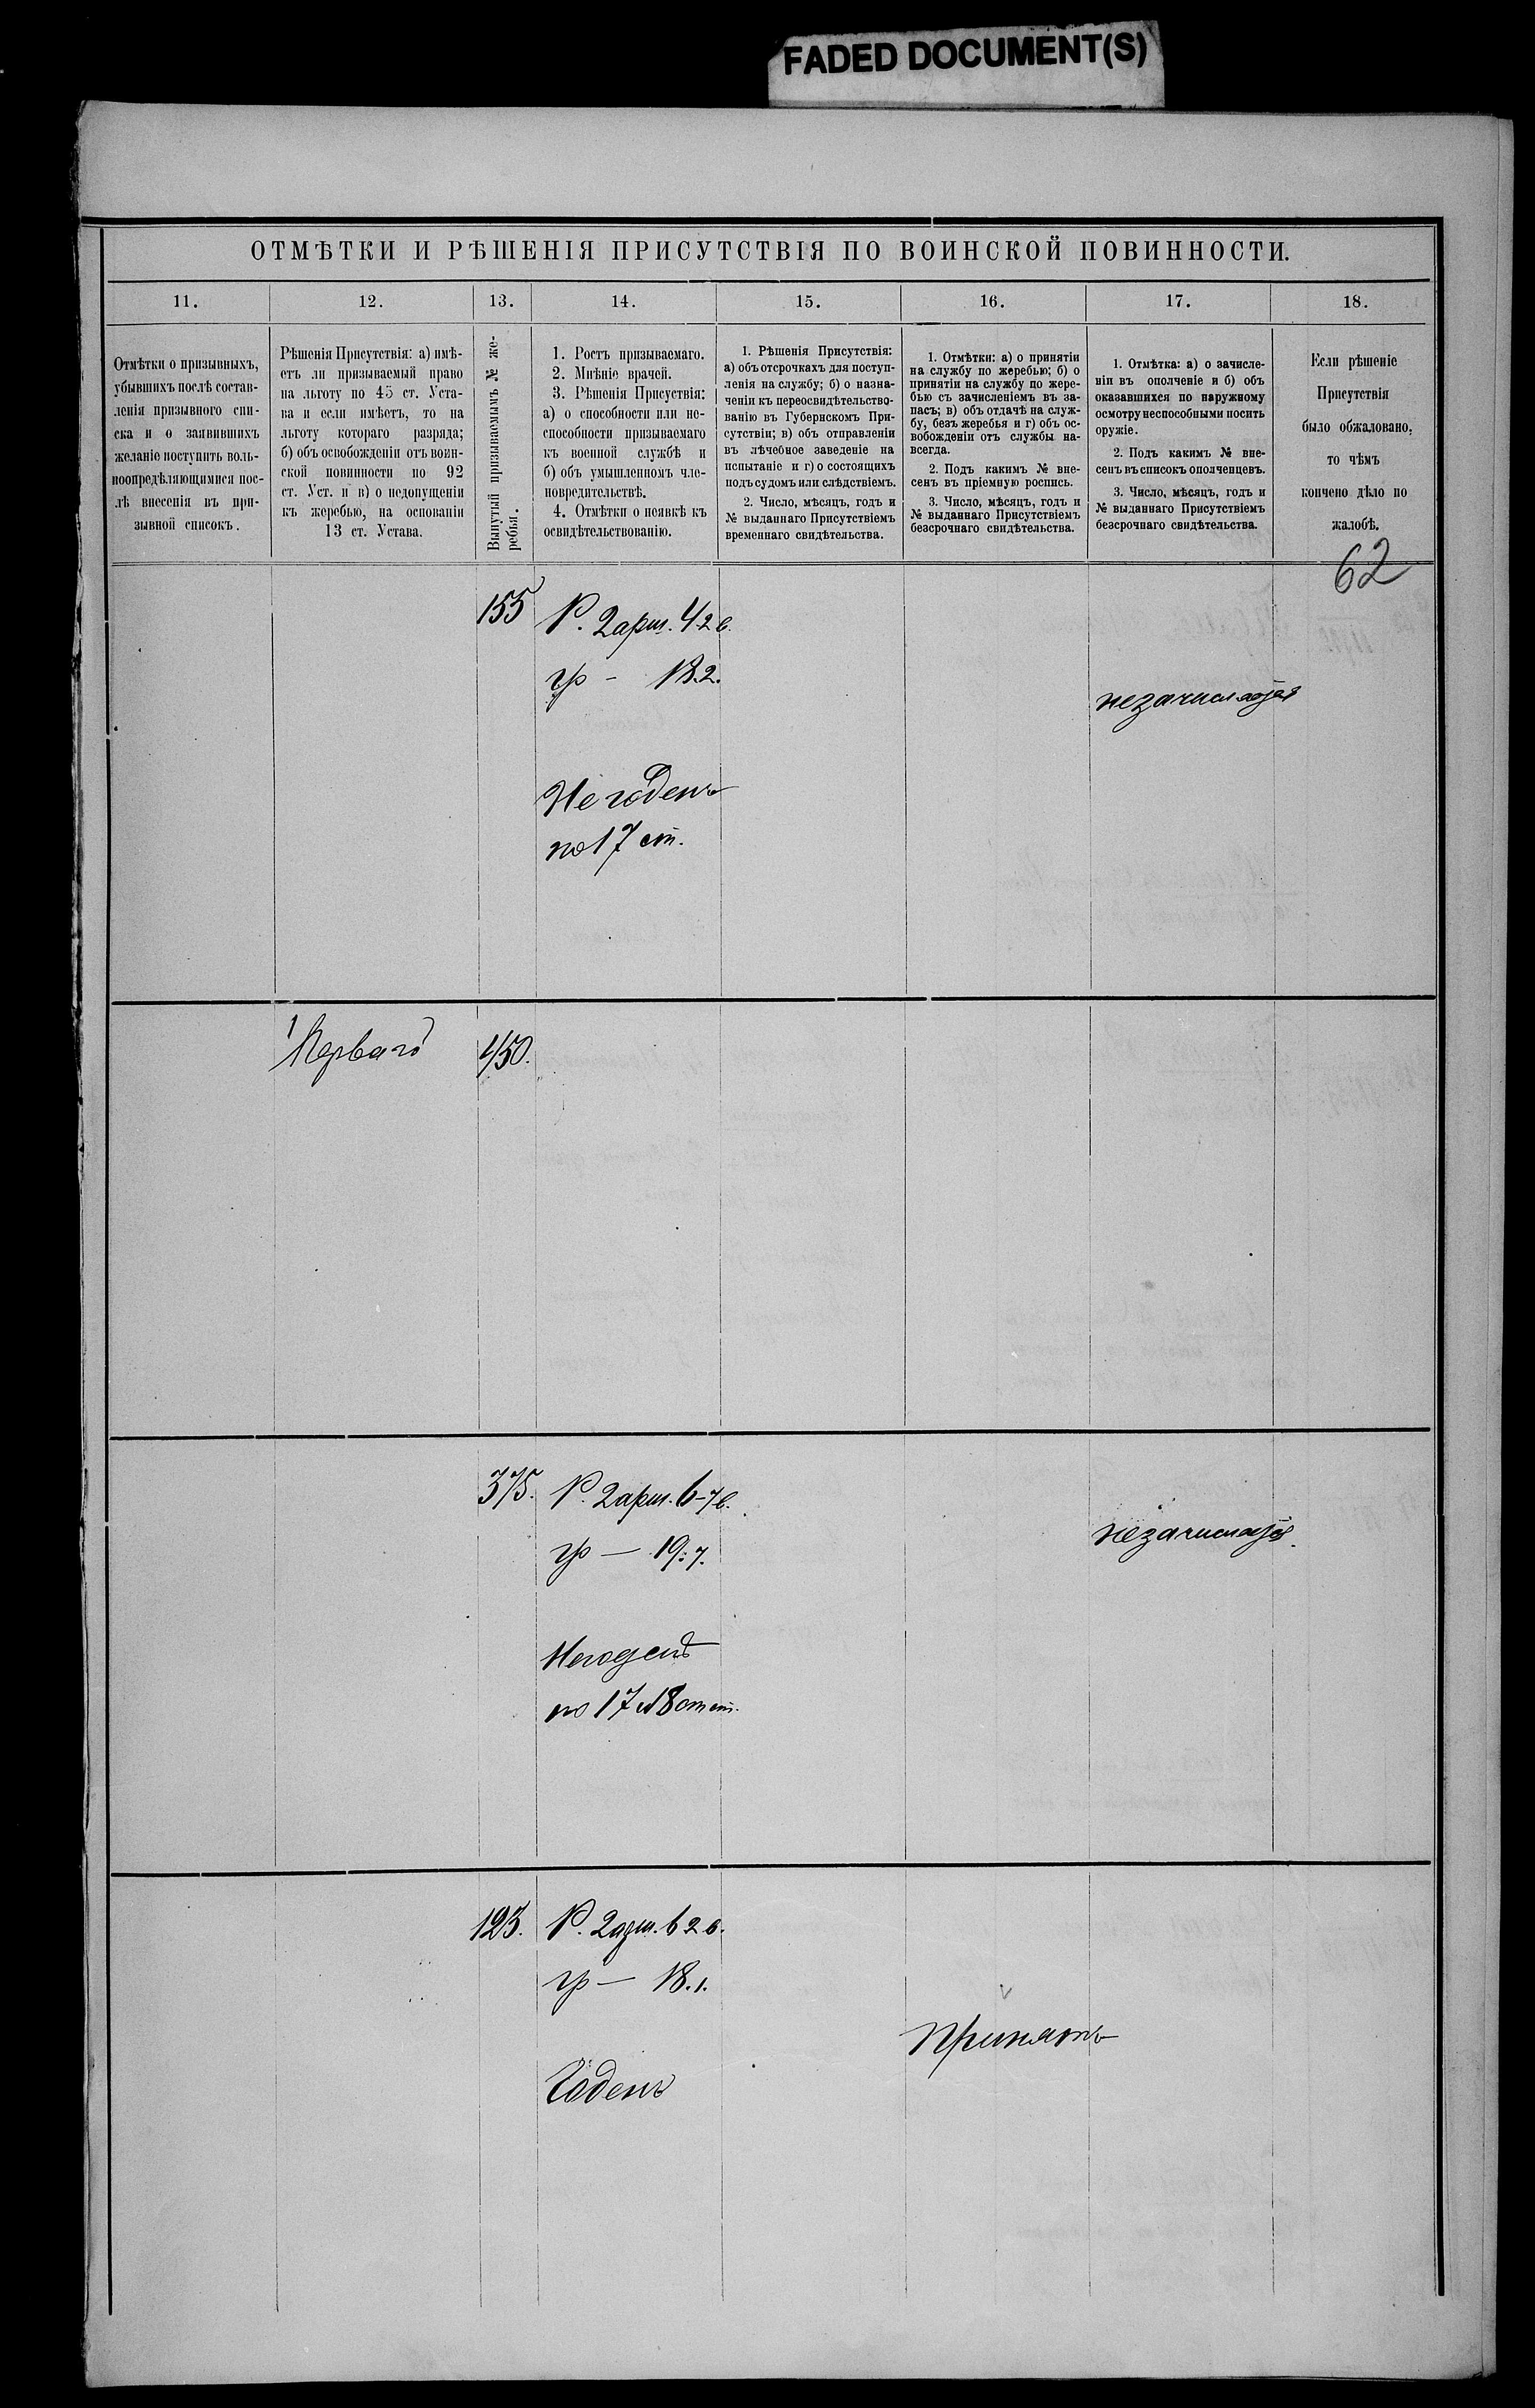 FADED DOCUMENT(S)
ОТМѢТКИ И РѢШЕНІЯ ПРИСУТСТВІЯ ПО ВОИНСКОЙ ПОВИННОСТИ.
11.
12.
13.
14.
15.
16.
17.
18.
Отмѣтки о призывныхъ,
убывшихъ послѣ состав-
ленія призывного спи-
ска и о заявившихъ
желаніе поступить воль-
ноопредѣляющимися пос-
лѣ внесенія въ при-
зывной списокъ.
Рѣшенія Присутствія: а) имѣ-
етъ ли призываемый право
на льготу по 45 ст. Уста-
ва и если имѣетъ, то на
льготу котораго разряда;
б) объ освобожденіи отъ воин-
ской повинности по 92
ст. Уст. и в) о недопущеніи
къ жеребью, на основаніи
13 ст. Устава.
Вынутый призываемымъ № же-
ребья.
1. Ростъ призываемаго.
2. Мнѣніе врачей.
3. Рѣшенія Присуствія:
а) о способности или не-
способности призываемаго
къ военной службѣ и
б) объ умышленномъ чле-
новредительствѣ.
4. Отмѣтки о неявкѣ къ
освидѣтельствованію.
1. Рѣшенія Присутствія:
а) объ отсрочкахъ для поступ-
ленія на службу; б) о назна-
ченіи къ переосвидѣтельство-
ванію въ Губернскомъ При-
сутствіи; в) объ отправленіи
въ лѣчебное заведеніе на
испытаніе и г) о состоящихъ
подъ судомъ или слѣдствіемъ.
2. Число, мѣсяцъ, годъ и
№ выданнаго Присутствіемъ
временнаго свидѣтельства.
1. Отмѣтки: а) о принятіи
на службу по жеребью; б) о
принятіи на службу по жере-
бью съ зачисленіемъ въ за-
пасъ; в) объ отдачѣ на служ-
бу, безъ жеребья и г) объ ос-
вобожденіи отъ службы на-
всегда.
2. Подъ какимъ № вне-
сенъ въ пріемную роспись.
3. Число, мѣсяцъ, годъ и
№ выданнаго Присутствіемъ
безсрочнаго свидѣтельства.
1. Отмѣтка: а) о зачисле-
ніи въ ополченіе и б) объ
оказавшихся по наружному
осмотру неспособными носить
оружіе.
2. Подъ какимъ № вне-
сенъ въ списокъ ополченцевъ.
3. Число, мѣсяцъ, годъ и
№ выданнаго Присутствіемъ
безсрочнаго свидѣтельства.
Если рѣшеніе
Присутствія
было обжаловано,
то чѣмъ
кончено дѣло по
жалобѣ.
62
155
Р. 2 арш. 4 2 в.
гр - 18.2.
незачисляется
Не годенъ
по 17 ст.
1
Перваго
450.
375.
Р. 2 арш. 6-7 в.
гр — 19:7.
незачисляется.
Негоденъ
по 17 и 18 ст ст.
123.
Р. 2 арш. 6 2 в.
гр — 18.1.
принятъ
Годенъ